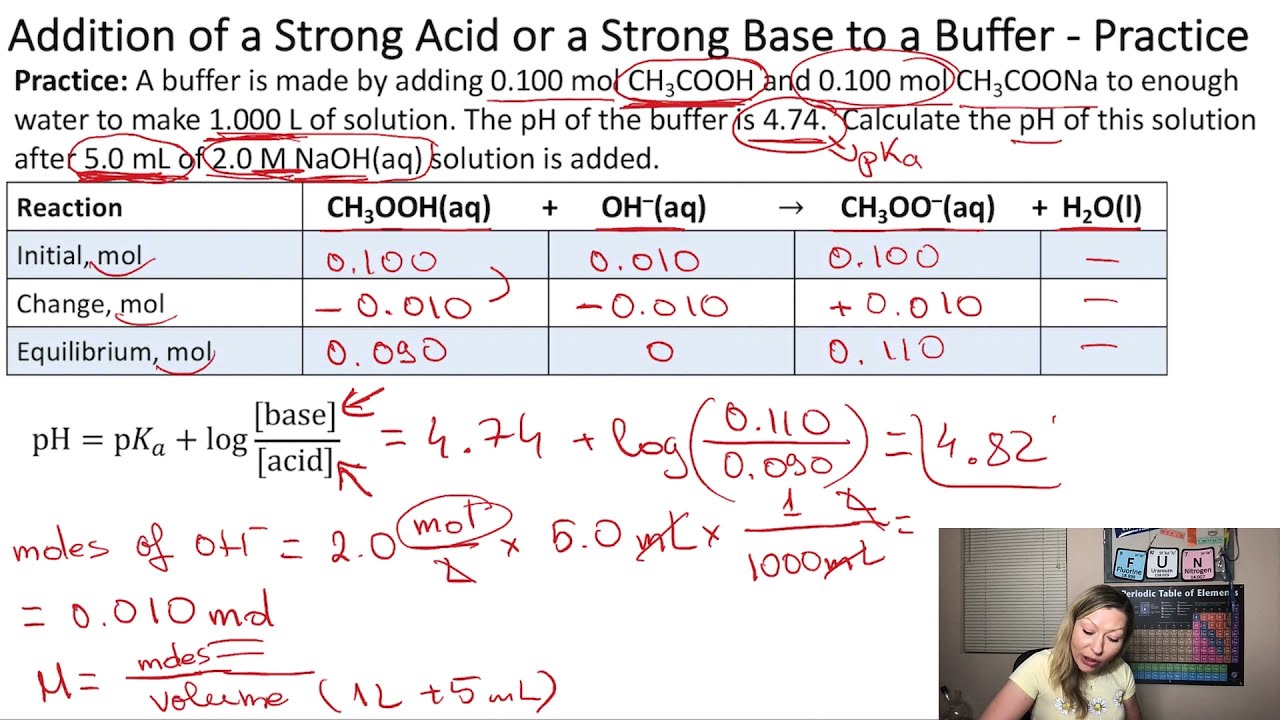 Addition of a Strong Acid or a Strong Base to a Buffer - Practice
Practice: A buffer is made by adding 0.100 mol CH₃COOH and 0.100 mol CH₃COONa to enough
water to make 1.000 L of solution. The pH of the buffer is 4.74. Calculate the pH of this solution
after 5.0 mL of 2.0 M NaOH(aq) solution is added.
pKa
Reaction CH₃OOH(aq) + OH⁻(aq) → CH₃OO⁻(aq) + H₂O(l)
Initial, mol 0.100 0.010 0.100 —
Change, mol - 0.010 - 0.010 + 0.010 —
Equilibrium, mol 0.090 0 0.110 —
pH = pKₐ + log [base]/[acid] = 4.74 + log(0.110/0.090) = 4.82
moles of OH⁻ = 2.0 mol/L × 5.0 mL × 1 L/1000 mL =
= 0.010 mol
M = moles/volume (1L + 5 mL)
F U N
Fluorine Uranium Nitrogen
Periodic Table of Elements